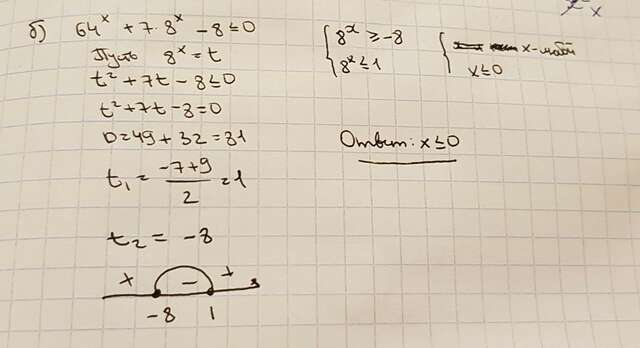 x
б) 64^x + 7·8^x - 8 ≤ 0
Пусть 8^x = t
t² + 7t - 8 ≤ 0
t² + 7t - 8 = 0
D = 49 + 32 = 81
t₁ = (-7+9)/2 = 1
t₂ = -8
+ - +
-8 1
{ 8^x ≥ -8
8^x ≤ 1
{ x - любой
x ≤ 0
Ответ: x ≤ 0